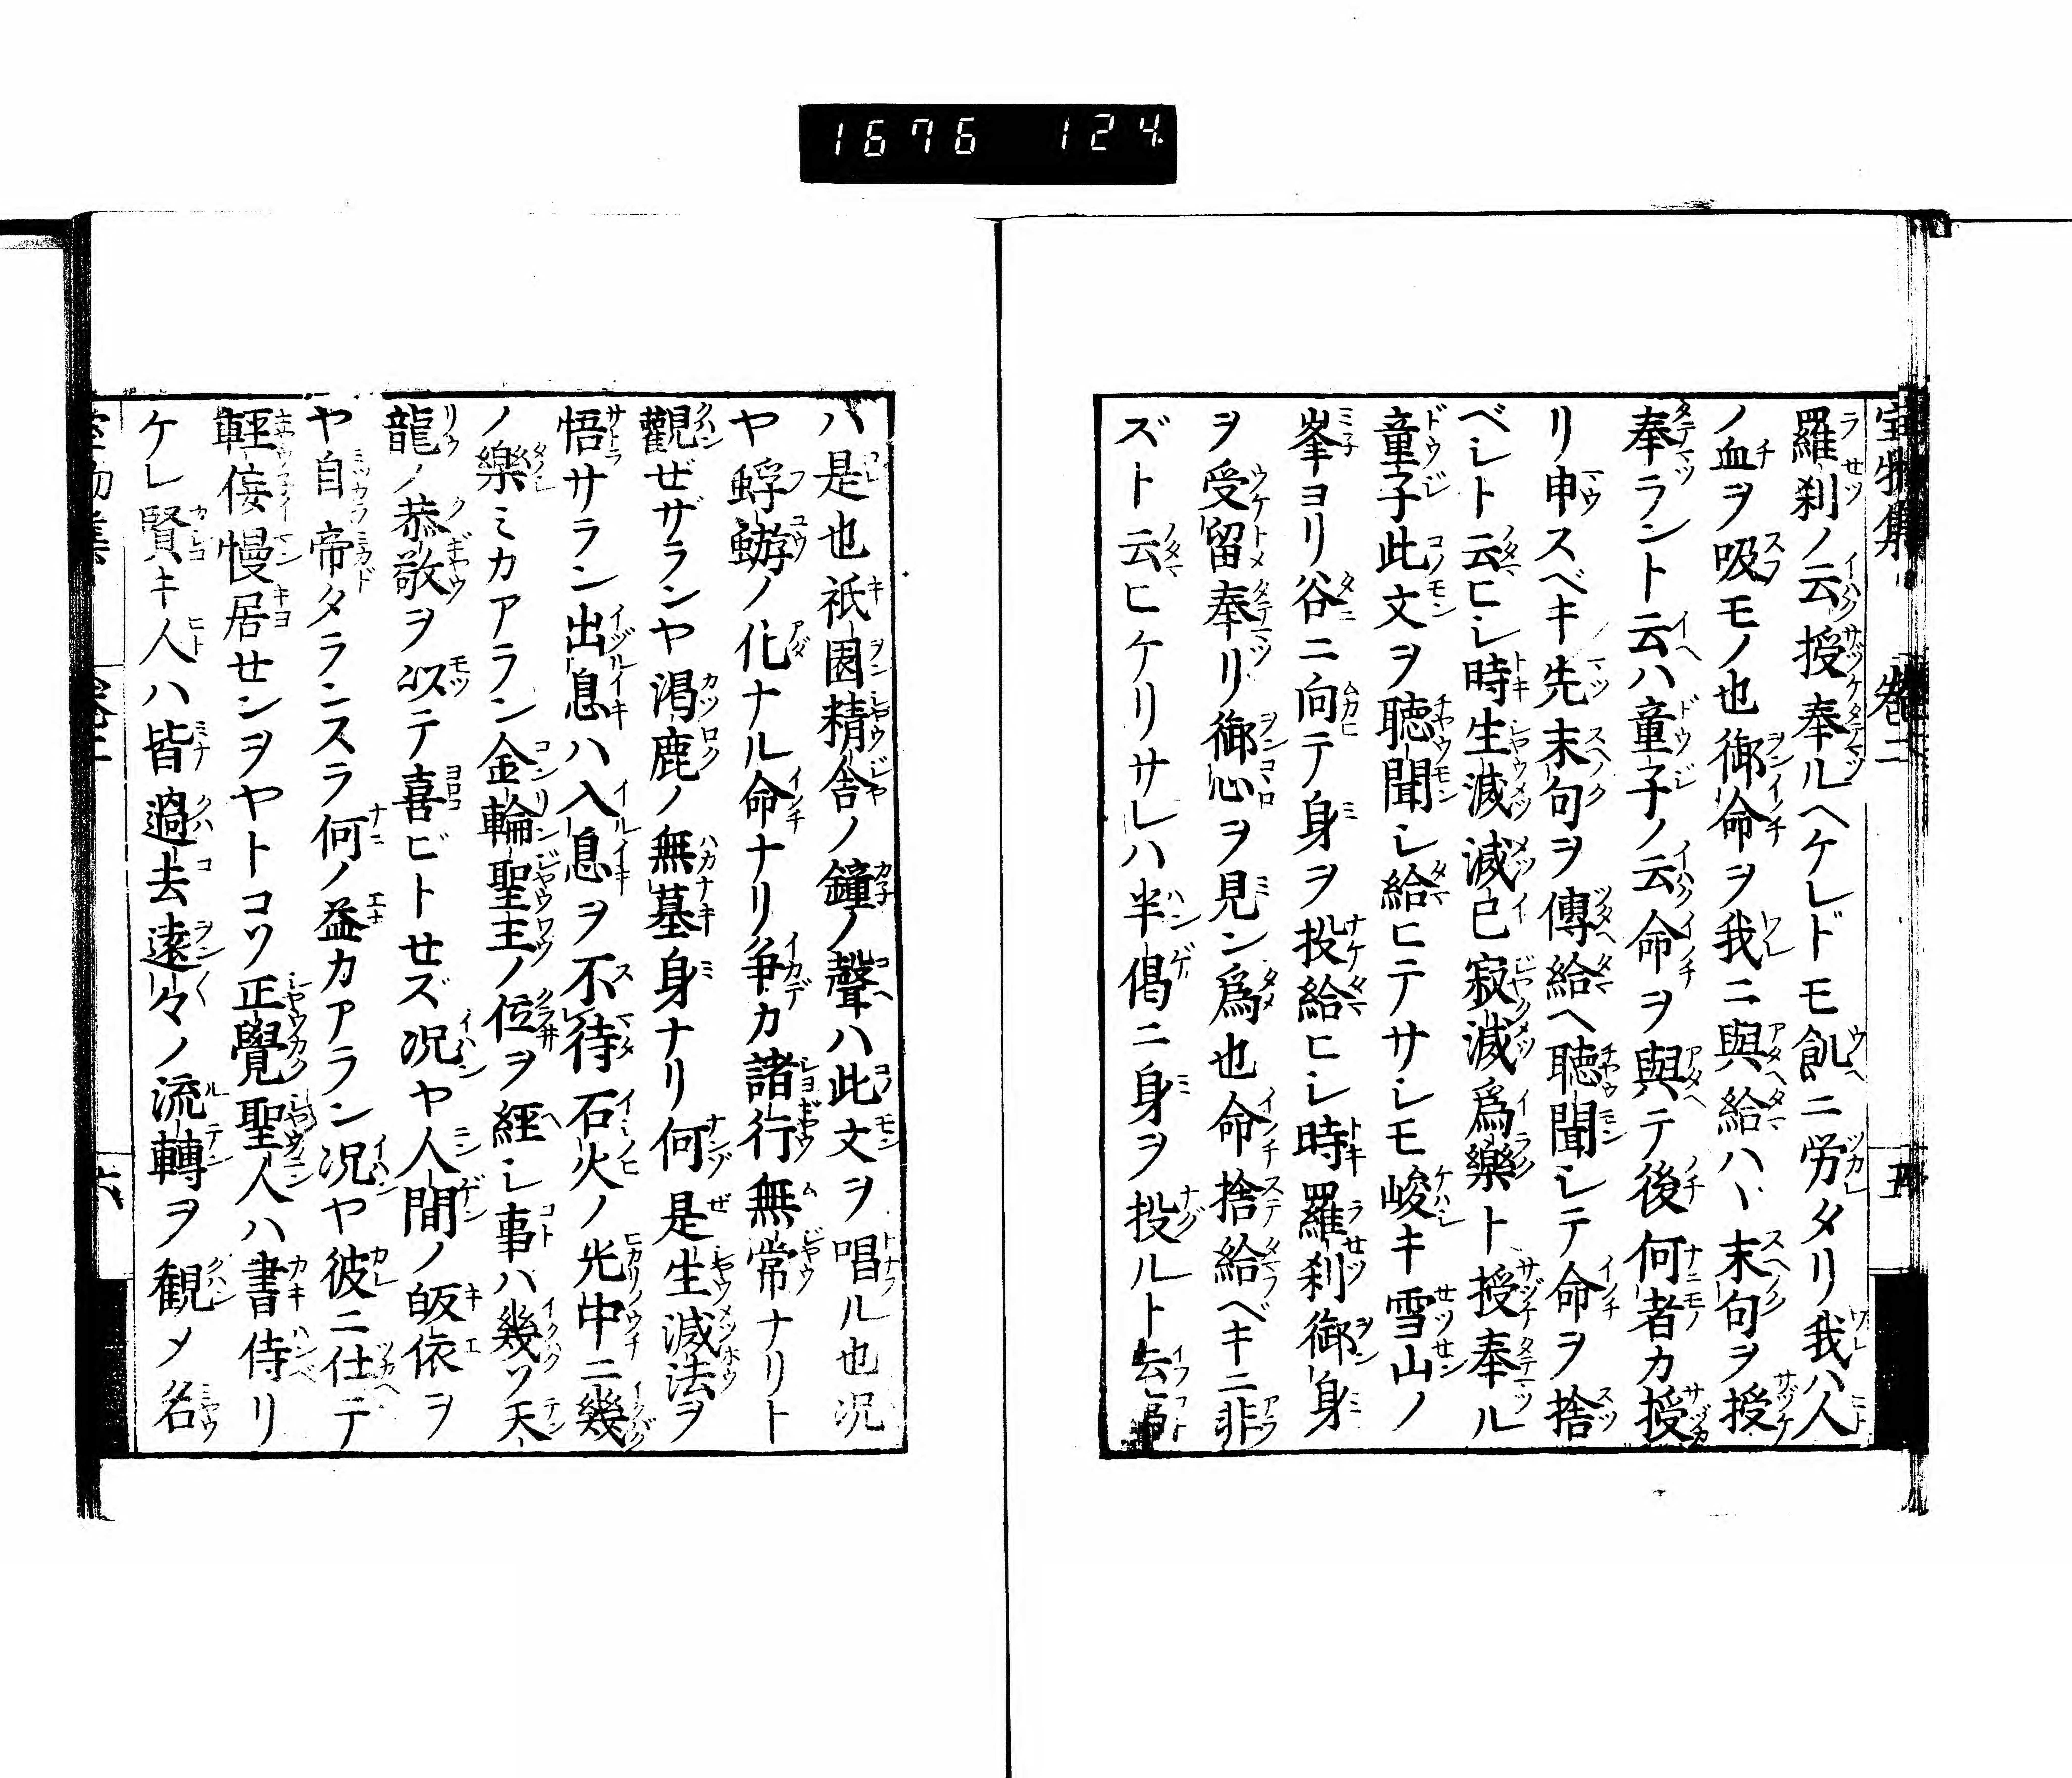 1676 124
羅刹ノ云授奉ルヘケレドモ飢ニ労タリ我ハ人
ノ血ヲ吸モノ也御命ヲ我ニ與給ハヽ末句ヲ授
奉ラント云ハ童子ノ云命ヲ與テ後何者カ授
リ申スベキ先末句ヲ傳給ヘ聴聞シテ命ヲ捨
ベシト云ヒシ時生滅滅已寂滅爲樂ト授奉ル
童子此文ヲ聴聞シ給ヒテサシモ峻キ雪山ノ
峯ヨリ谷ニ向テ身ヲ投給ヒシ時羅刹御身
ヲ受留奉リ御心ヲ見ン爲也命捨給ベキニ非
ズト云ヒケリサレハ半偈ニ身ヲ投ルト云
ハ是也祇園精舎ノ鐘ノ聲ハ此文ヲ唱ル也况
ヤ蜉蝣ノ化ナル命ナリ争カ諸行無常ナリト
觀ゼザランヤ渇鹿ノ無墓身ナリ何是生滅法ヲ
悟サラン出息ハ入息ヲ不待石火ノ光中ニ幾
ノ樂ミカアラン金輪聖主ノ位ヲ經シ事ハ幾ソ天
龍ノ恭敬ヲ以テ喜ビトセズ况ヤ人間ノ皈依ヲ
ヤ自帝タラニスラ何ノ益カアラン况ヤ彼ニ仕テ
輕慢居センヲヤトコソ正覺聖人ハ書侍リ
ケレ賢キ人ハ皆過去遠々ノ流轉ヲ観メ名